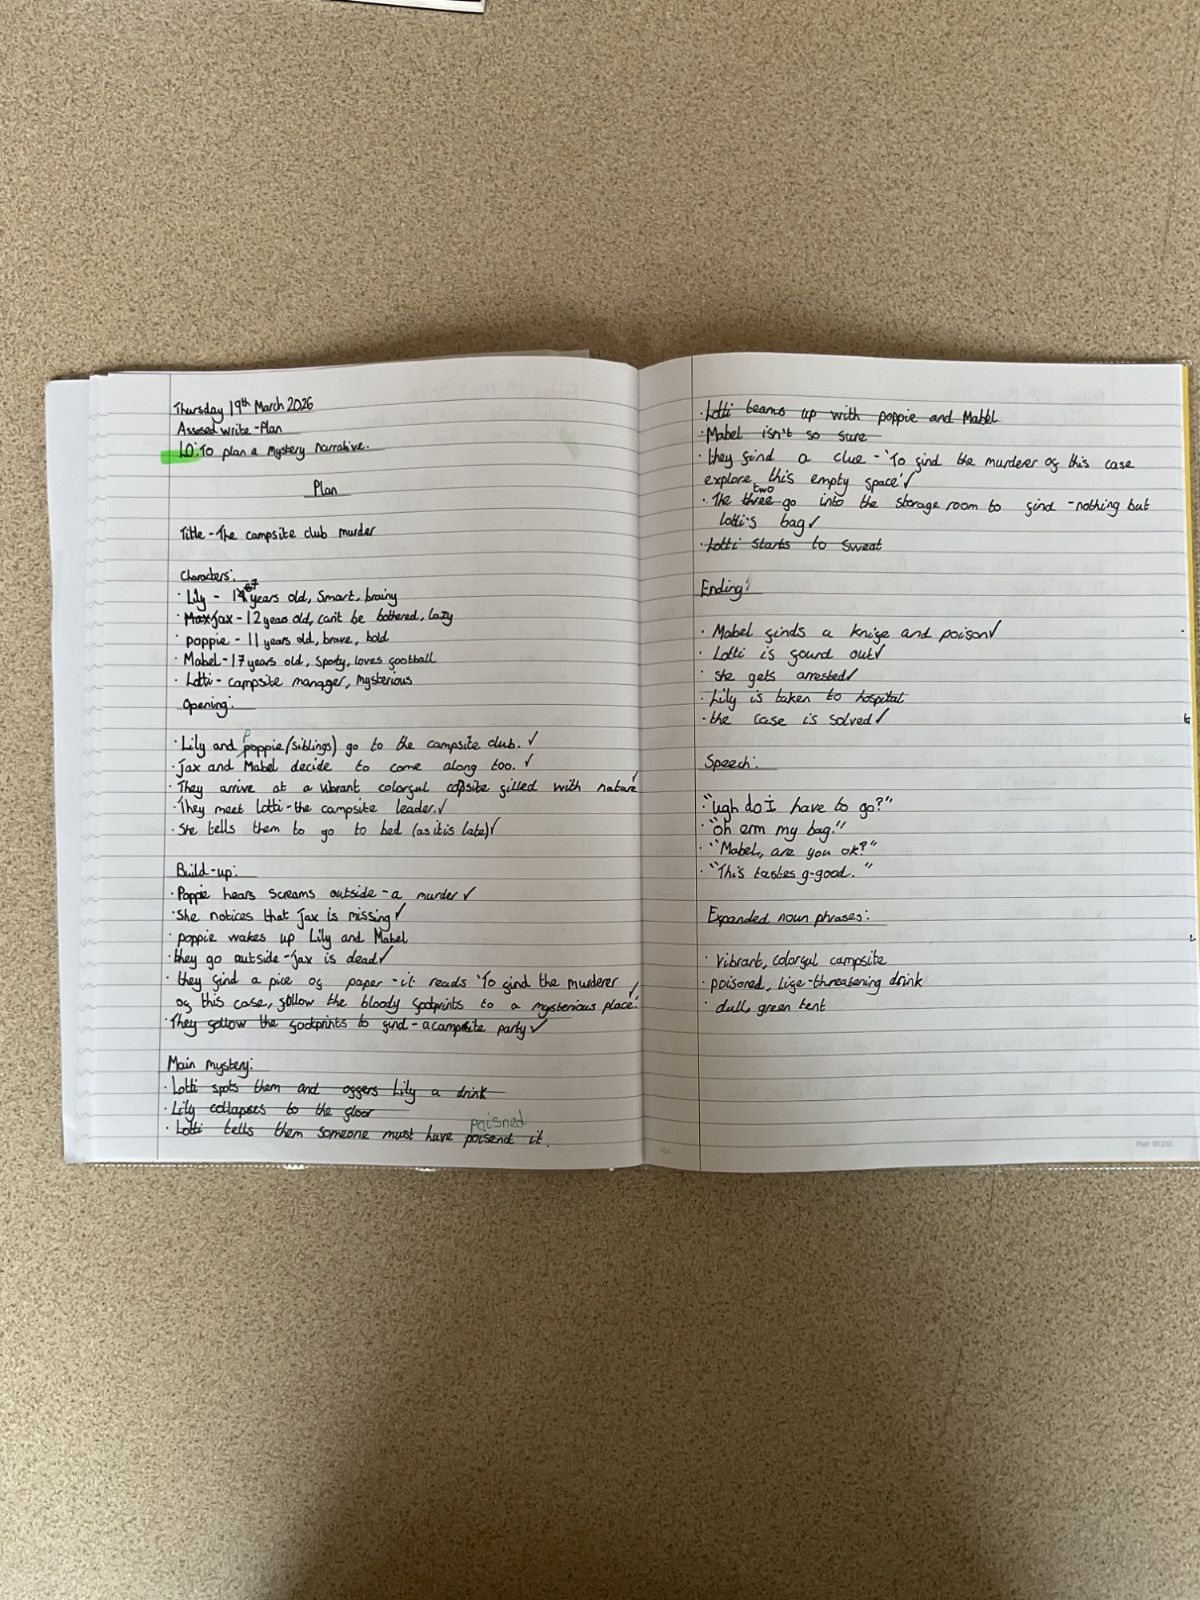 Thursday 19th March 2026
Assesed write - Plan
LO: To plan a mystery narrative.
Plan
Title - The campsite club murder
Characters:
· Lily - years old, Smart, brainy
· Max Jax - 12 years old, can't be bothered, lazy
· poppie - 11 years old, brave, bold
· Mabel - 17 years old, sporty, loves football
· Lotti - campsite manager, mysterious
Opening:
· Lily and Poppie (siblings) go to the campsite club. ✓
· Jax and Mabel decide to come along too. ✓
· They arrive at a vibrant colorful campsite filled with nature ✓
· They meet Lotti - the campsite leader. ✓
· She tells them to go to bed (as it is late) ✓
Build-up:
· Poppie hears screams outside - a murder ✓
· She notices that Jax is missing ✓
· poppie wakes up Lily and Mabel
· they go outside - Jax is dead ✓
· they find a pice of paper - it reads 'To find the murderer
of this case, follow the bloody footprints to a mysterious place.' ✓
· They follow the footprints to find - a campsite party ✓
Main mystery:
· Lotti spots them and offers Lily a drink
· Lily collapses to the floor
poisned
· Lotti tells them someone must have poisend it.
· Lotti teams up with poppie and Mabel
· Mabel isn't so sure
· they find a clue - 'To find the murderer of this case
explore this empty space' ✓
two
· The three go into the storage room to find - nothing but
lotti's bag ✓
· Lotti starts to sweat
Ending:
· Mabel finds a knife and poison ✓
· Lotti is found out ✓
· she gets arrested ✓
· Lily is taken to hospital
· the case is solved ✓
Speech:
· "ugh do I have to go?"
· "oh erm my bag."
· "Mabel, are you ok?"
· "This tastes g-good."
Expanded noun phrases:
· vibrant, colorful campsite
· poisoned, life-threatening drink
· dull, green tent